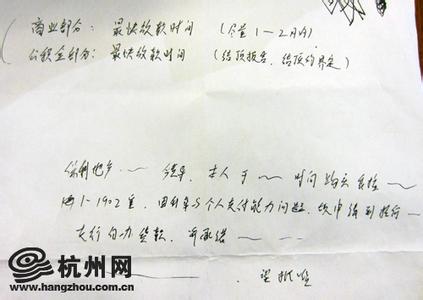 商业部分：最快放款时间（尽量1-2月内）
公积金部分：最快放款时间（结顶报告，结顶的界定）
保利地产～～领导，本人于～～时间购买东桂～～
1-1902室，因利率与个人支付能力问题，现申请到招行～～
支行自办贷款，所承诺～～
望批准
杭州网
www.hangzhou.com.cn